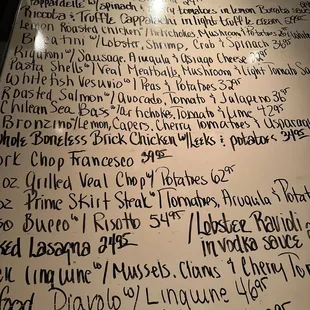 w/ Spinach & tomatoes in lemon
Ricotta & Truffle Cappallacci in light truffle cream
Lemon Roasted Chicken w/ Artichokes, Mushrooms Potatoes
w/ Lobster, Shrimp, Crab & Spinach 36
Rigatoni w/ Sausage, Arugula & Asiago Cheese
Pasta Shells w/ Veal Meatballs, Mushroom & Light Tomato Sa
Whitefish Vesuvio w/ Peas & Potatoes 32
Roasted Salmon w/ Avocado, Tomato & Jalapeno 36
Chilean Sea Bass w/ Artichoke, Tomato & Lime
Bronzino/Lemon, Capers, Cherry Tomatoes &
Whole Boneless Brick Chicken w/ Leeks & potatoes 3495
ork Chop Francesco 3995
oz Grilled Veal Chop w/ Potatoes 6295
oz Prime Skirt Steak w/ Tomatoes, Arugula & Potat
so Bucco w/ Risotto 5495
/Lobster Ravioli
in vodka sauce
ked Lasagna 2495
ck linguine w/ Mussels, Clams & Cherry Tom
food Diavolo w/ Linguine 4695